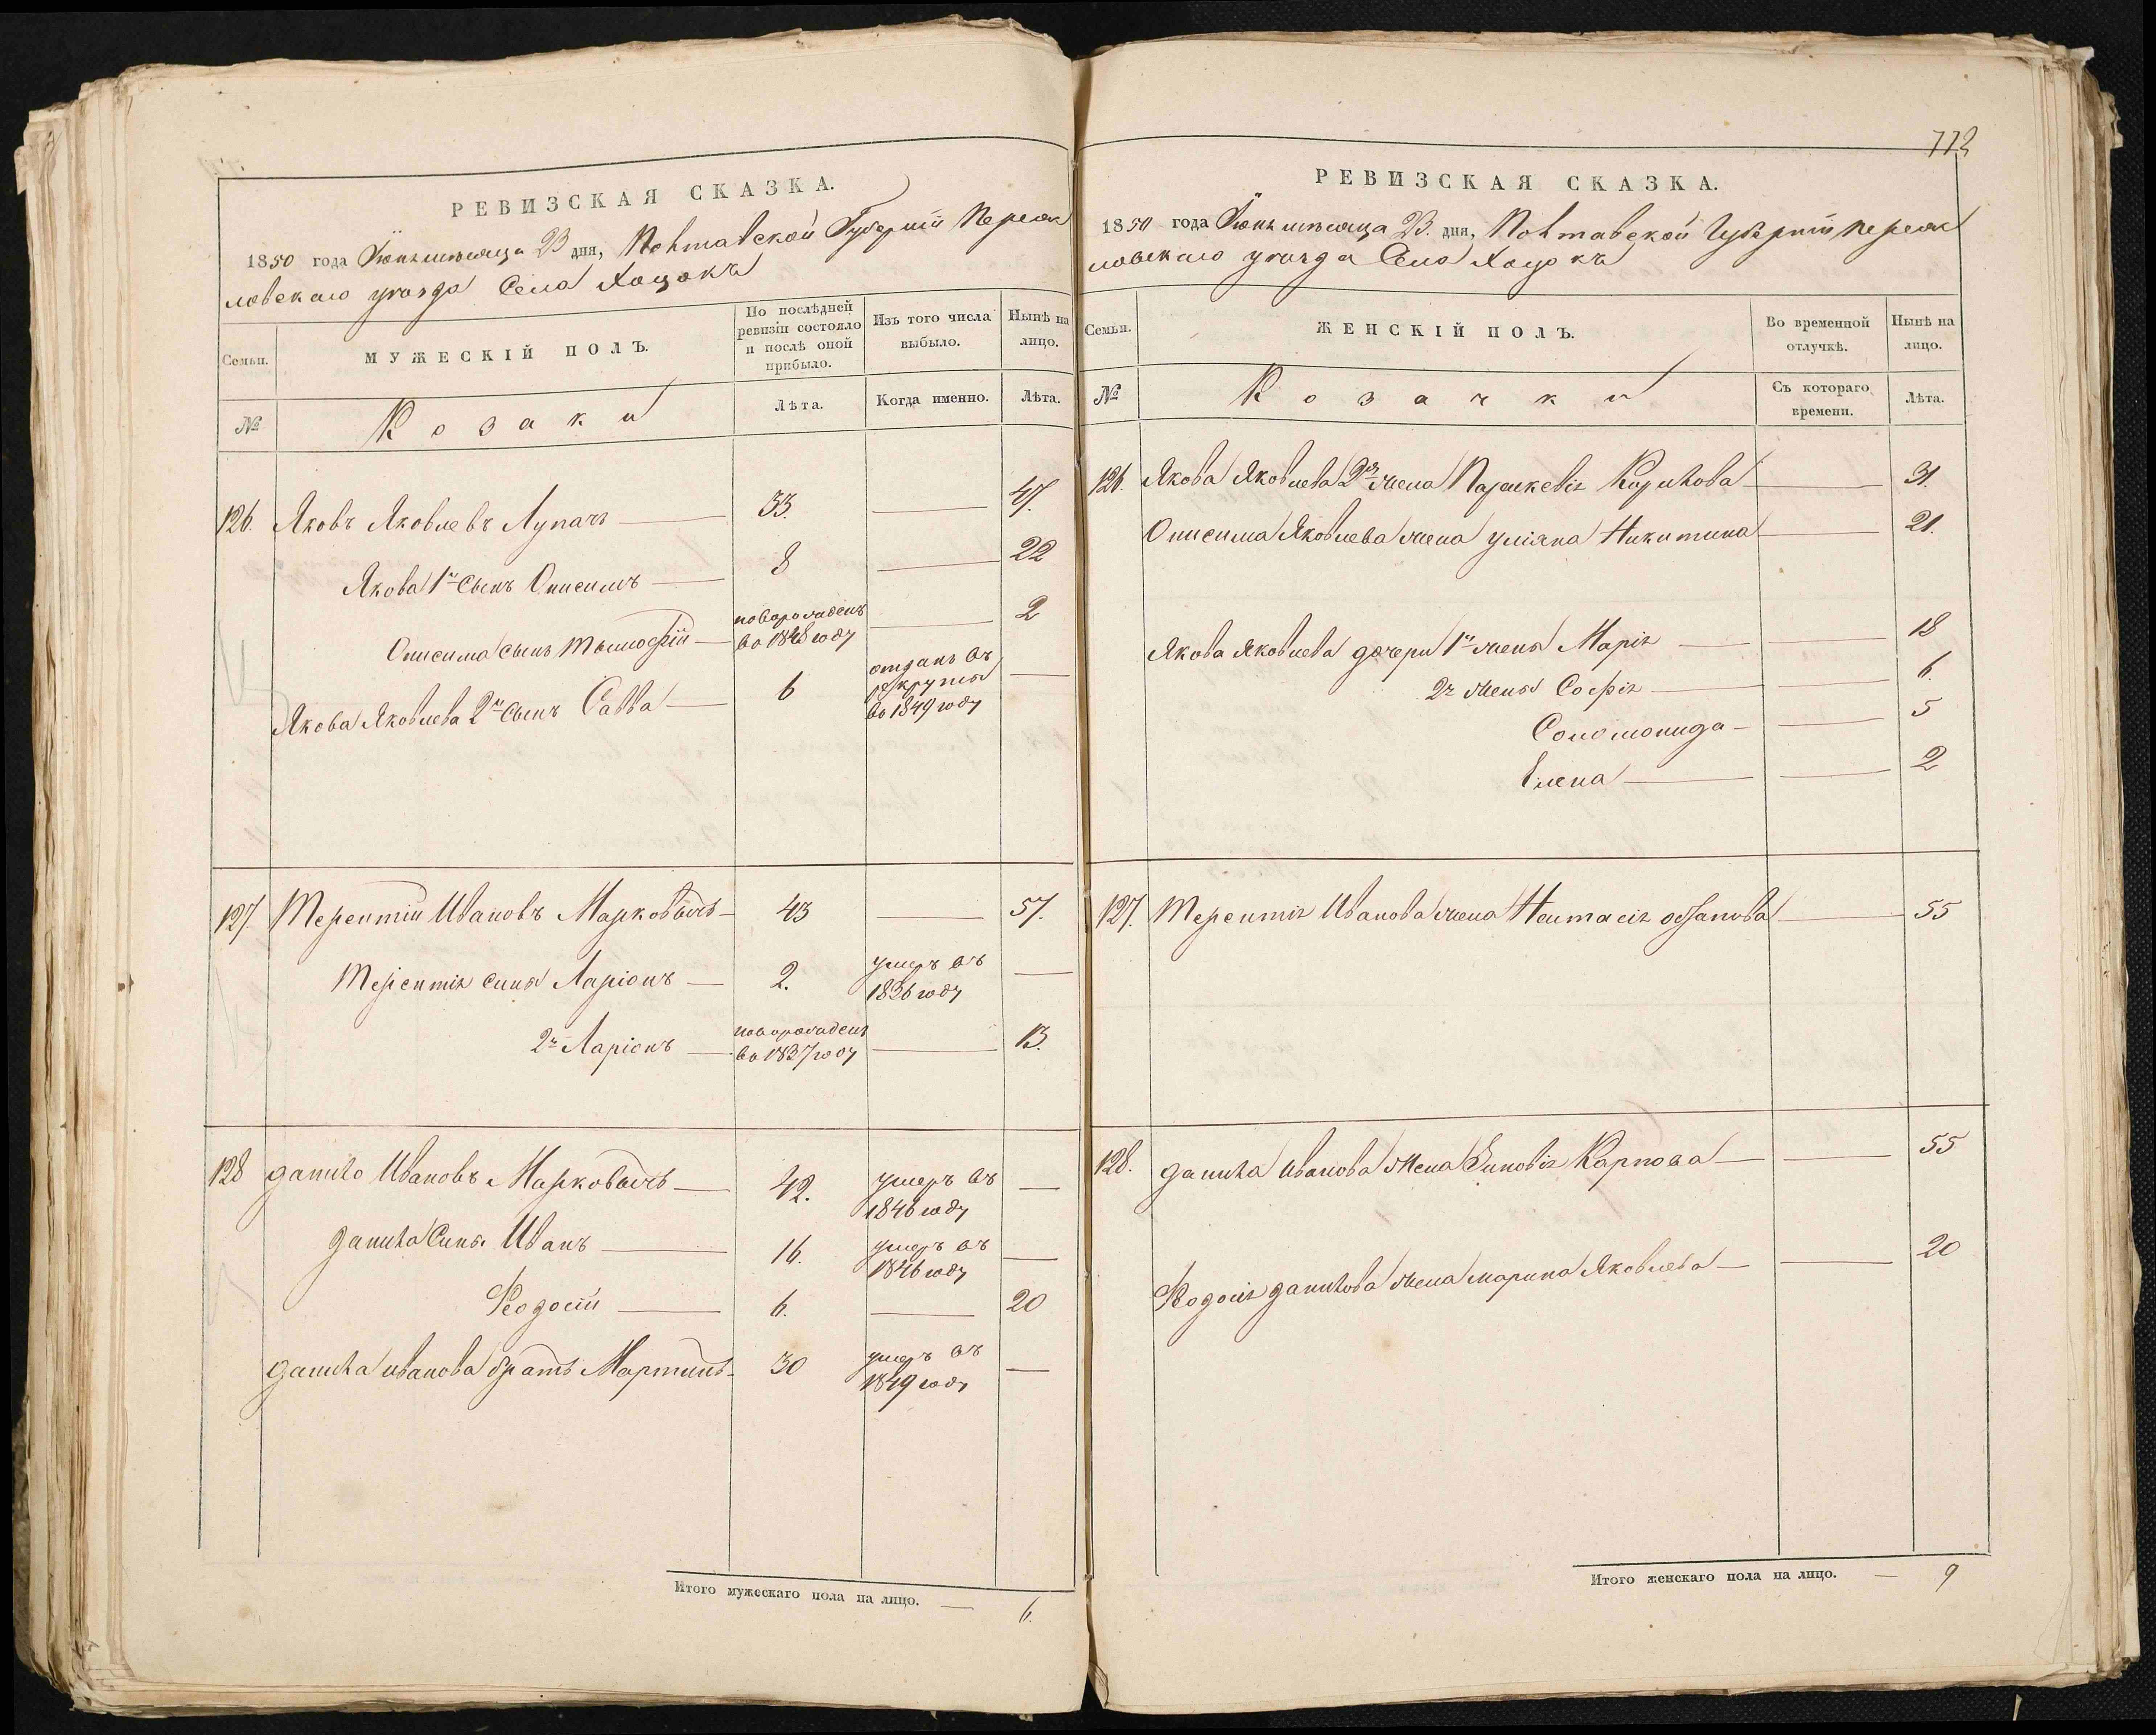 РЕВИЗСКАЯ СКАЗКА.
1850 года Іюнь мѣсяца 23 дня, Полтавской Губерніи Переяс
ловскаго уѣзда Села Хоцокъ
Семьи.
МУЖЕСКІЙ ПОЛЪ.
По послѣдней ревизіи состояло и послѣ оной прибыло.
Изъ того числа выбыло.
Нынѣ на лицо.
№
Козаки
Лѣта.
Когда именно.
Лѣта.
126. Яковъ Яковлевъ Лупачъ — 33. — 47.
Якова 1й Сынъ Онисимъ — 8 — 22
Онисима сынъ Тымофій — новорожденъ во 1848 году — 2
Якова Яковлева 2й Сынъ Савва — 6 отданъ въ рекруты во 1849 году —
127. Терентій Ивановъ Марковычъ — 43 — 57.
Терентія сыны Ларіонъ — 2. умеръ въ 1836 году —
2й Ларіонъ — новорожденъ во 1837 году — 13.
128 Данило Ивановъ Марковычъ — 42. умеръ въ 1846 году —
Данила Сыны Иванъ — 16. умеръ въ 1846 году —
Феодосій — 6. — 20
Данила Иванова братъ Мартинъ — 30 умеръ въ 1849 году —
Итого мужескаго пола на лицо. — 6.
772
РЕВИЗСКАЯ СКАЗКА.
1850 года Іюнь мѣсяца 23. дня, Полтавской Губерніи Переяс
ловскаго уѣзда Села Хоцокъ
Семьи.
ЖЕНСКІЙ ПОЛЪ.
Во временной отлучкѣ.
Нынѣ на лицо.
№
Козачки
Съ котораго времени.
Лѣта.
126. Якова Яковлева 2я жена Параскевія Кирилова — — 31.
Онисима Яковлева жена Уліяна Никитина — — 21.
Якова Яковлева дочери 1й жены Марія — — 18
2й жены Софія — — 6.
Соломонида — — 5
Елена — — 2
127. Терентія Иванова жена Настасія — 55
128. Данила Иванова жена Зиновія Карпова — — 55
Феодосія Данилова жена Марина Яковлева — — 20
Итого женскаго пола на лицо. — 9